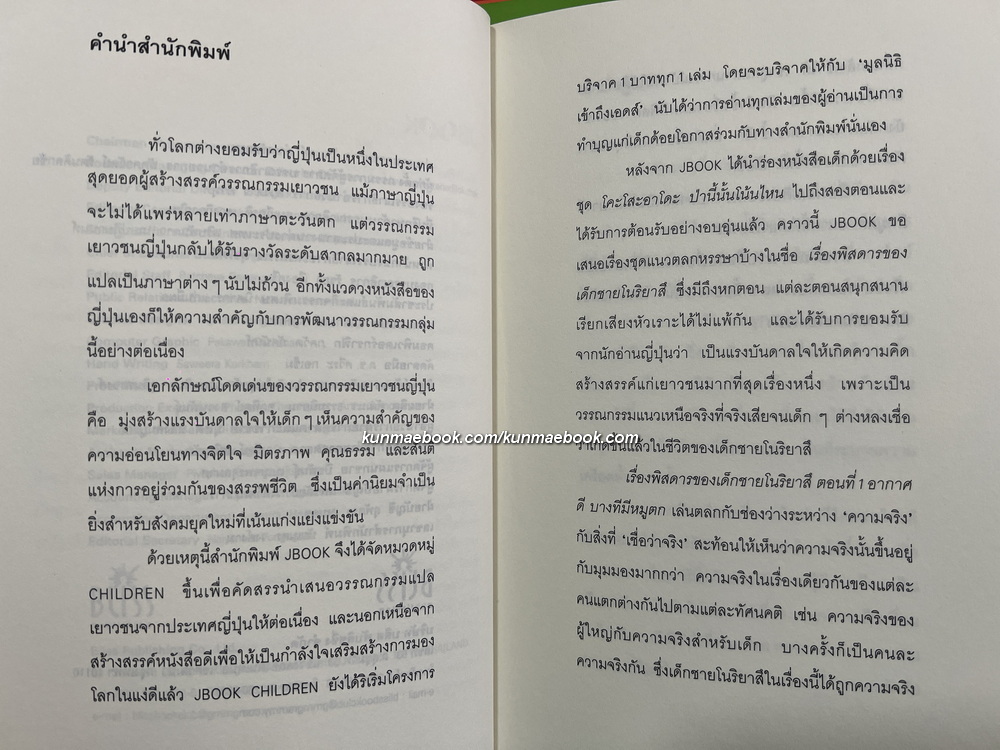 คำนำสำนักพิมพ์
ทั่วโลกต่างยอมรับว่าญี่ปุ่นเป็นหนึ่งในประเทศ
สุดยอดผู้สร้างสรรค์วรรณกรรมเยาวชน แม้ภาษาญี่ปุ่น
จะไม่ได้แพร่หลายเท่าภาษาตะวันตก แต่วรรณกรรม
เยาวชนญี่ปุ่นกลับได้รับรางวัลระดับสากลมากมาย ถูก
แปลเป็นภาษาต่าง ๆ นับไม่ถ้วน อีกทั้งแวดวงหนังสือของ
ญี่ปุ่นเองก็ให้ความสำคัญกับการพัฒนาวรรณกรรมกลุ่ม
นี้อย่างต่อเนื่อง
เอกลักษณ์โดดเด่นของวรรณกรรมเยาวชนญี่ปุ่น
คือ มุ่งสร้างแรงบันดาลใจให้เด็ก ๆ เห็นความสำคัญของ
ความอ่อนโยนทางจิตใจ มิตรภาพ คุณธรรม และสันติ
แห่งการอยู่ร่วมกันของสรรพชีวิต ซึ่งเป็นค่านิยมจำเป็น
ยิ่งสำหรับสังคมยุคใหม่ที่เน้นแก่งแย่งแข่งขัน
ด้วยเหตุนี้สำนักพิมพ์ JBOOK จึงได้จัดหมวดหมู่
CHILDREN ขึ้นเพื่อคัดสรรนำเสนอวรรณกรรมแปล
เยาวชนจากประเทศญี่ปุ่นให้ต่อเนื่อง และนอกเหนือจาก
สร้างสรรค์หนังสือดีเพื่อให้เป็นกำลังใจเสริมสร้างการมอง
โลกในแง่ดีแล้ว JBOOK CHILDREN ยังได้ริเริ่มโครงการ
บริจาค 1 บาททุก 1 เล่ม โดยจะบริจาคให้กับ ‘มูลนิธิ
เข้าถึงเอดส์’ นับได้ว่าการอ่านทุกเล่มของผู้อ่านเป็นการ
ทำบุญแก่เด็กด้อยโอกาสร่วมกับทางสำนักพิมพ์นั่นเอง
หลังจาก JBOOK ได้นำร่องหนังสือเด็กด้วยเรื่อง
ชุด โคะโสะอาโดะ ป่านี้นั้นโน้นไหน ไปถึงสองตอนและ
ได้รับการต้อนรับอย่างอบอุ่นแล้ว คราวนี้ JBOOK ขอ
เสนอเรื่องชุดแนวตลกหรรษาบ้างในชื่อ เรื่องพิสดารของ
เด็กชายโนริยาสึ ซึ่งมีถึงหกตอน แต่ละตอนสนุกสนาน
เรียกเสียงหัวเราะได้ไม่แพ้กัน และได้รับการยอมรับ
จากนักอ่านญี่ปุ่นว่า เป็นแรงบันดาลใจให้เกิดความคิด
สร้างสรรค์แก่เยาวชนมากที่สุดเรื่องหนึ่ง เพราะเป็น
วรรณกรรมแนวเหนือจริงที่จริงเสียจนเด็ก ๆ ต่างหลงเชื่อ
kunmaebook.com/kunmaebook.com
ว่าเกิดขึ้นแล้วในชีวิตของเด็กชายโนริยาสึ
เรื่องพิสดารของเด็กชายโนริยาสึ ตอนที่ 1 อากาศ
ดี บางทีมีหมูตก เล่นตลกกับช่องว่างระหว่าง ‘ความจริง’
กับสิ่งที่ ‘เชื่อว่าจริง’ สะท้อนให้เห็นว่าความจริงนั้นขึ้นอยู่
กับมุมมองมากกว่า ความจริงในเรื่องเดียวกันของแต่ละ
คนแตกต่างกันไปตามแต่ละทัศนคติ เช่น ความจริงของ
ผู้ใหญ่กับความจริงสำหรับเด็ก บางครั้งก็เป็นคนละ
ความจริงกัน ซึ่งเด็กชายโนริยาสึในเรื่องนี้ได้ถูกความจริง